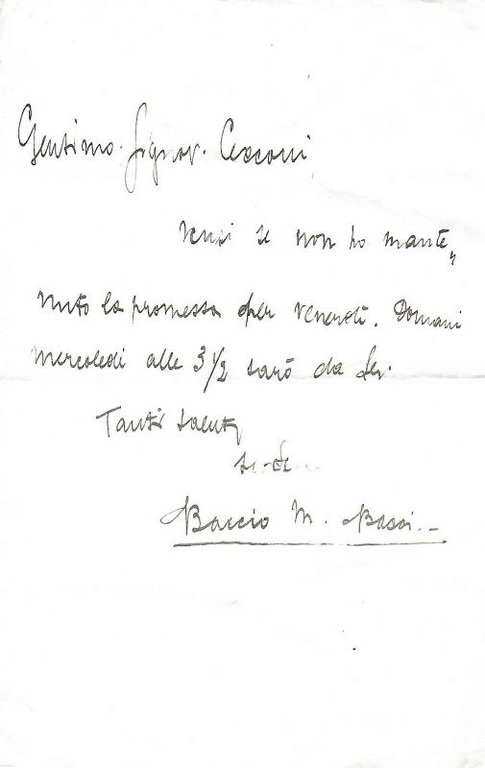 Gentimo. Signor. Cecconi
scusi se non ho mante„
nuto la promessa per venerdì. Domani
mercoledì alle 3 1/2 sarò da Lei.
Tanti saluti
Baccio M. Bacci.